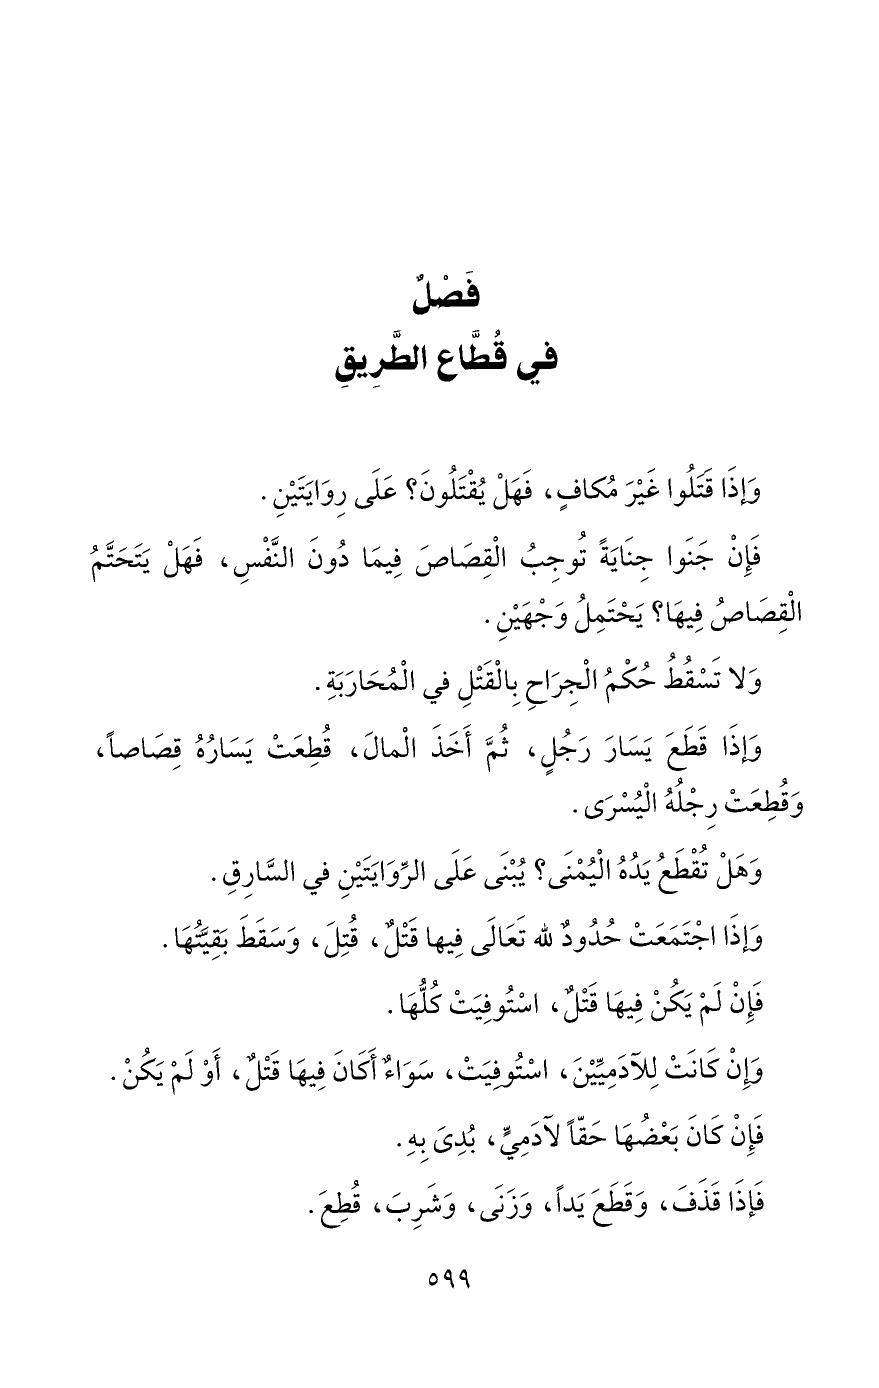 فَصْلٌ
في قُطَّاع الطَّرِيقِ
وَإِذَا قَتَلُوا غَيْرَ مُكافٍ، فَهَلْ يُقْتَلُونَ؟ عَلَى رِوَايَتَيْنِ.
فَإِنْ جَنَوا جِنَايَةً تُوجِبُ الْقِصَاصَ فِيمَا دُونَ النَّفْسِ، فَهَلْ يَتَحَتَّمُ
الْقِصَاصُ فِيهَا؟ يَحْتَمِلُ وَجْهَيْنِ.
وَلا تَسْقُطُ حُكْمُ الْجِرَاحِ بِالْقَتْلِ في الْمُحَارَبَةِ.
وَإِذَا قَطَعَ يَسَارَ رَجُلٍ، ثُمَّ أَخَذَ الْمالَ، قُطِعَتْ يَسَارُهُ قِصَاصاً،
وَقُطِعَتْ رِجْلُهُ الْيُسْرَى.
وَهَلْ تُقْطَعُ يَدُهُ الْيُمْنَى؟ يُبْنَى عَلَى الرِّوَايَتَيْنِ في السَّارِقِ.
وَإِذَا اجْتَمَعَتْ حُدُودٌ لله تَعَالَى فِيها قَتْلٌ، قُتِلَ، وَسَقَطَ بَقِيَّتُهَا.
فَإِنْ لَمْ يَكُنْ فِيهَا قَتْلٌ، اسْتُوفِيَتْ كُلُّهَا.
وَإِنْ كَانَتْ لِلآدَمِيِّيْنَ، اسْتُوفِيَتْ، سَوَاءٌ أَكَانَ فِيهَا قَتْلٌ، أَوْ لَمْ يَكُنْ.
فَإِنْ كَانَ بَعْضُهَا حَقّاً لآدَمِيٍّ، بُدِىَ بِهِ.
فَإِذَا قَذَفَ، وَقَطَعَ يَداً، وَزَنَى، وَشَرِبَ، قُطِعَ.
٥٩٩